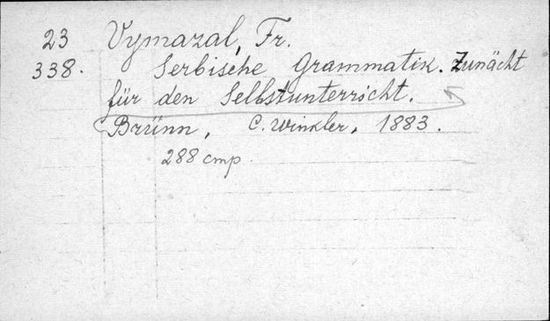 23 Vymazal, Fr.
338. Serbische Grammatik. Zunächt
für den Selbstunterricht.
Brünn, C. Winkler, 1883.
288 cmp.